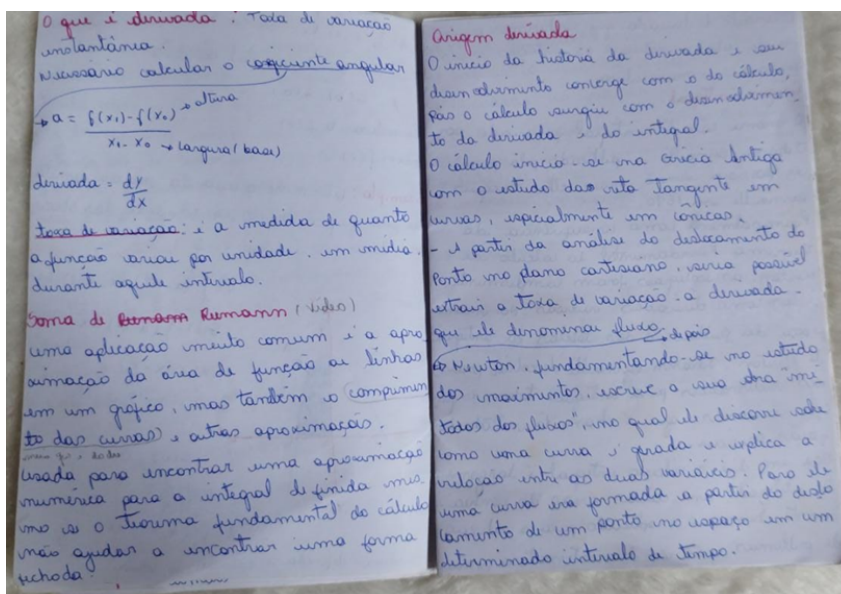 O que é derivada: Taxa de variação
instantânia.
Necessário calcular o coeficiente angular
a = f(x₁)-f(x₀) → altura
x₁ - x₀ → largura (base)
derivada = dy
dx
taxa de variação: é a medida de quanto
a função variou por unidade, em média,
durante aquele intervalo.
Soma de Riemann (vídeo)
uma aplicação muito comum é a apro
ximação da área de função ou linhas
em um gráfico, mas também o comprimen
to das curvas e outras aproximações.
usada para encontrar uma aproximação
numérica para a integral definida mes
mo se o teorema fundamental do cálculo
não ajudar a encontrar uma forma
fechada.
Origem derivada
O inicio da historia da derivada e seu
desenvolvimento converge com o do cálculo,
pois o cálculo surgiu com o desenvolvimen
to da derivada e do integral.
O cálculo inicia-se na Grécia Antiga
com o estudo das reta tangente em
curvas, especialmente em cônicas.
- A partir da análise do deslocamento do
Ponto no plano cartesiano, seria possível
extrair a taxa de variação - a derivada -
que ele denominou fluxo.
→ depois
→ Newton, fundamentando-se no estudo
dos movimentos, escreve a sua obra "mé
todos dos fluxos", no qual ele discorre sobre
como uma curva é gerada e explica a
relação entre as duas variáveis. Para ele
uma curva era formada a partir do deslo
camento de um ponto no espaço em um
determinado intervalo de tempo.